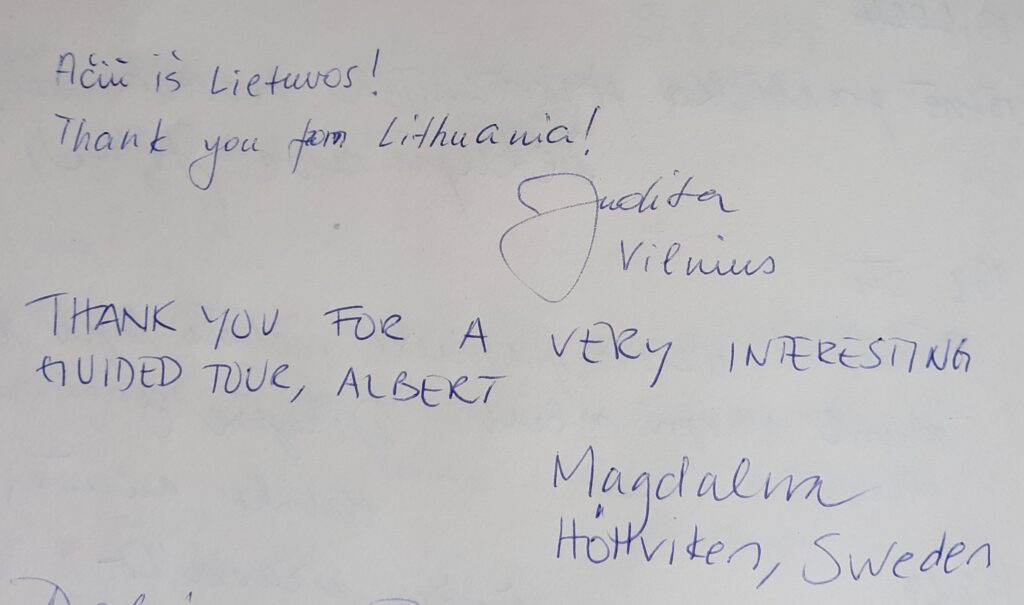 Ačiū iš Lietuvos!
Thank you from Lithuania!
Judita
Vilnius
THANK YOU FOR A VERY INTERESTING
GUIDED TOUR, ALBERT
Magdalena
Höllviken, Sweden